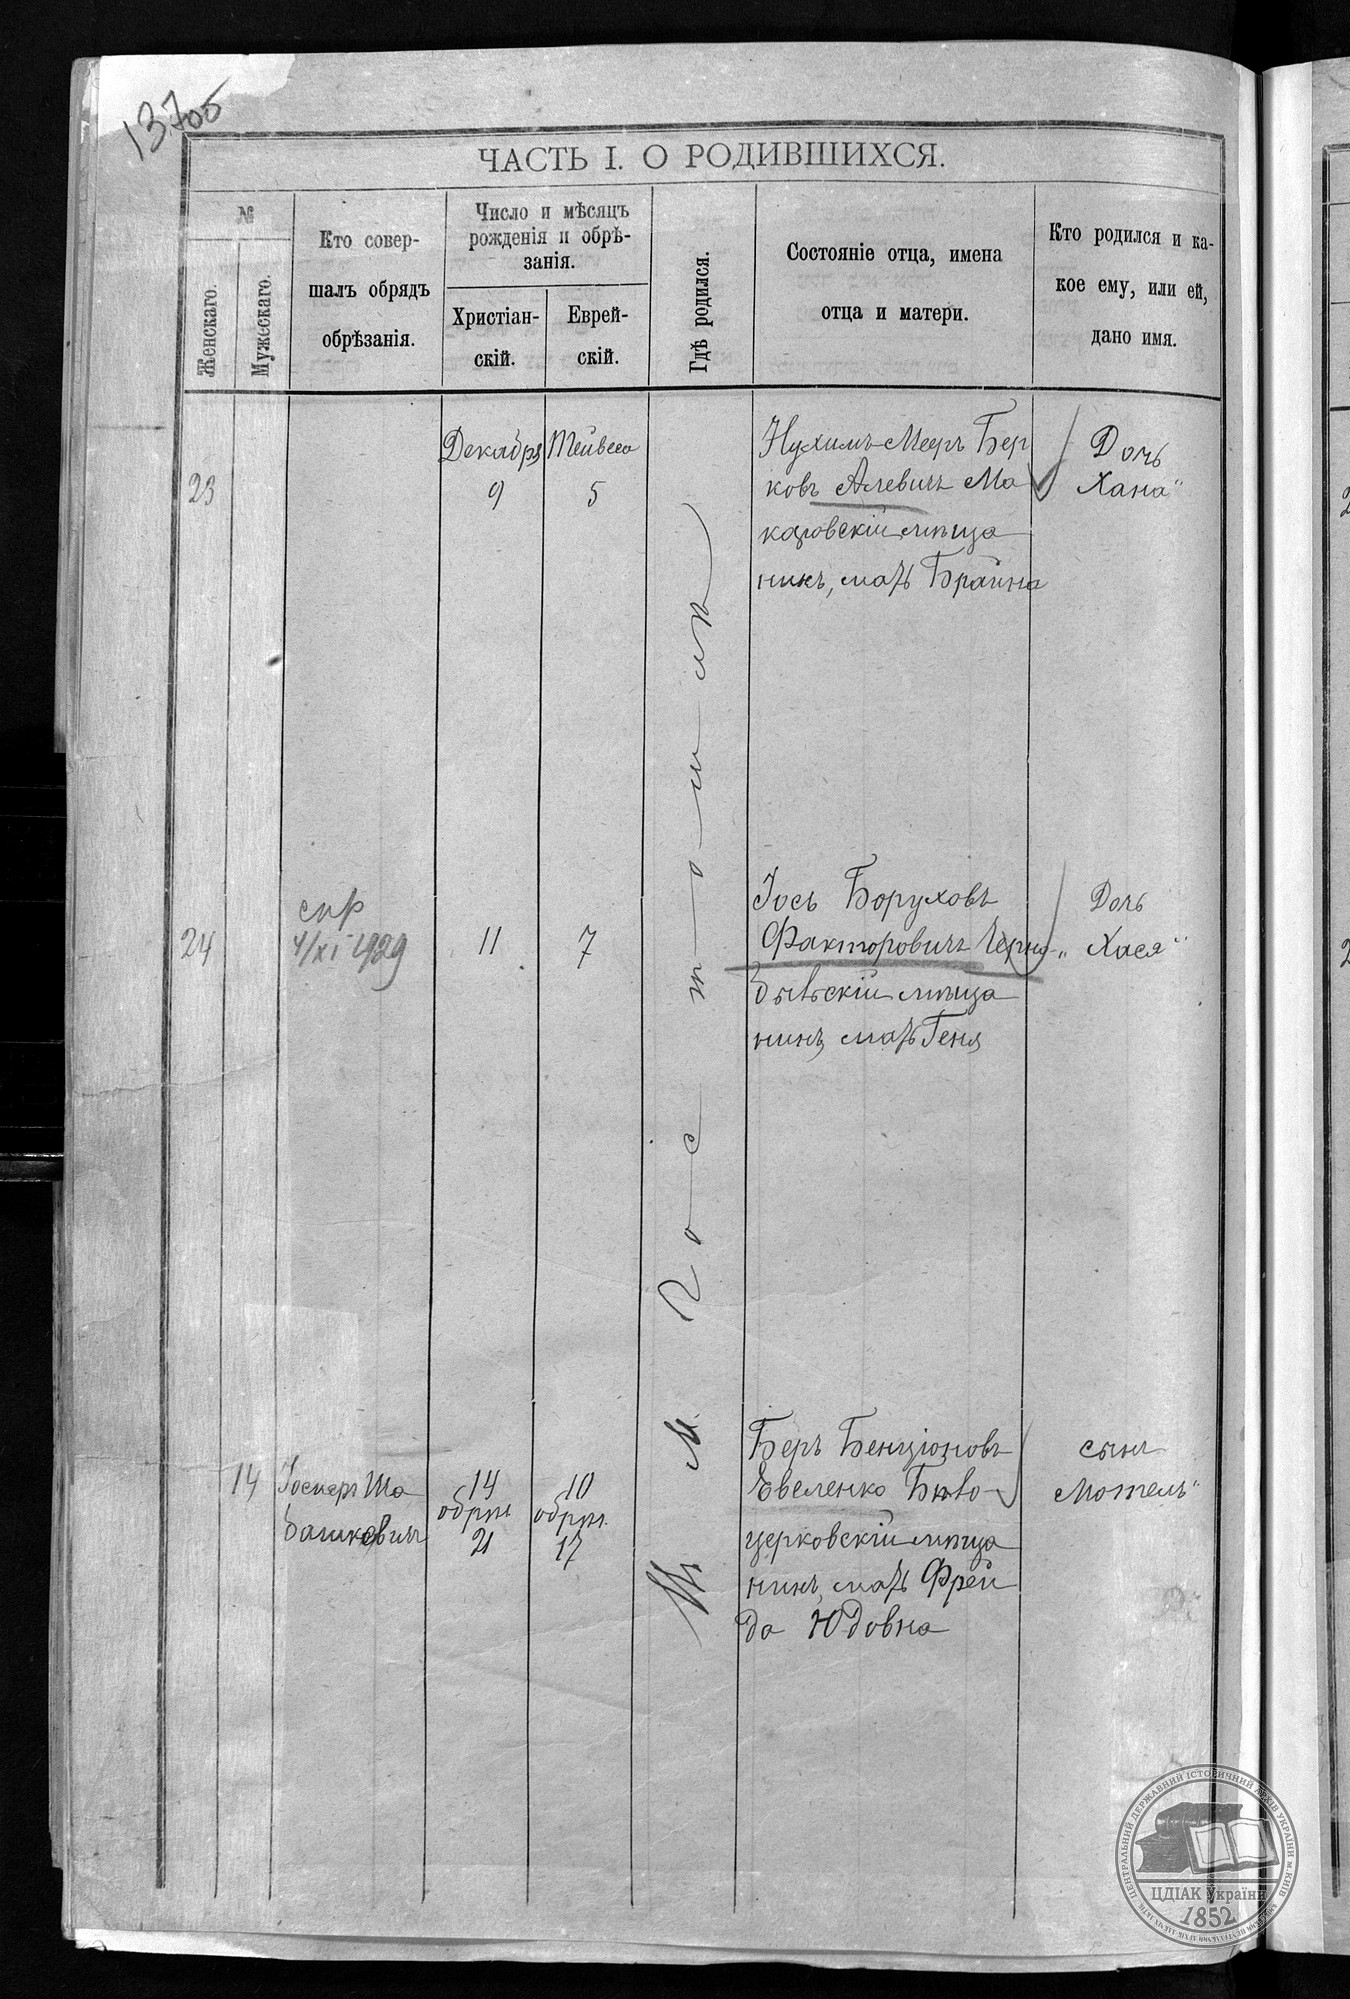 13705
ЧАСТЬ I. О РОДИВШИХСЯ.
№
Женскаго.
Мужескаго.
Кто совер-
шалъ обрядъ
обрѣзанія.
Число и мѣсяцъ
рожденія и обрѣ-
занія.
Христіан-
скій.
Еврей-
скій.
Гдѣ родился.
Состояніе отца, имена
отца и матери.
Кто родился и ка-
кое ему, или ей,
дано имя.
23
Декабря
9
Тейвеса
5
Нухимъ-Меер Бер
ковъ Алевичъ Ма
каровскій мѣща
нинъ, мать Браина
Дочь
Хана"
24
спр
4/XI 1929
11
7
Іось Боруховъ
Факторовичъ Черно-
быльскій мѣща
нинъ, мать Геня
Дочь
„Хася"
14
Іосперъ Ша
башкевич
14
обрѣз
21
10
обрѣз.
17
Беръ Бенціоновъ
Евеленко Бѣло-
церковскій мѣща
нинъ, мать Фрей
да Юдовна
сынъ
Мотель"
М. Ростошилѣ
ЦЕНТРАЛЬНИЙ ДЕРЖАВНИЙ ІСТОРИЧНИЙ АРХІВ УКРАЇНИ м.КИЇВ
ЦДІАК України
1852